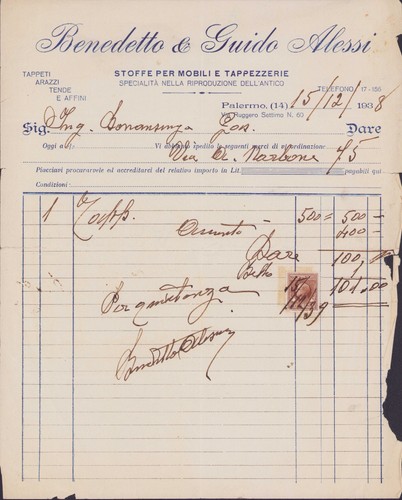 Benedetto & Guido Alessi
TAPPETI
ARAZZI
TENDE
E AFFINI
STOFFE PER MOBILI E TAPPEZZERIE
SPECIALITÀ NELLA RIPRODUZIONE DELL'ANTICO
TELEFONO 17-155
Palermo, (14) 15/12/1938
Via Ruggero Settimo N. 60
Sig. Ing. Dare
Oggi a Vi abbiamo spedito le seguenti merci di
Via Narbone 75
Piacciavi procurarvele ed accreditarci del relativo importo in Lit. pagabili qui
Condizioni
1 500= 500-
Acconto 400-
Dare 100,
Bollo
101.00
Per quietanza
Benedetto Alessi